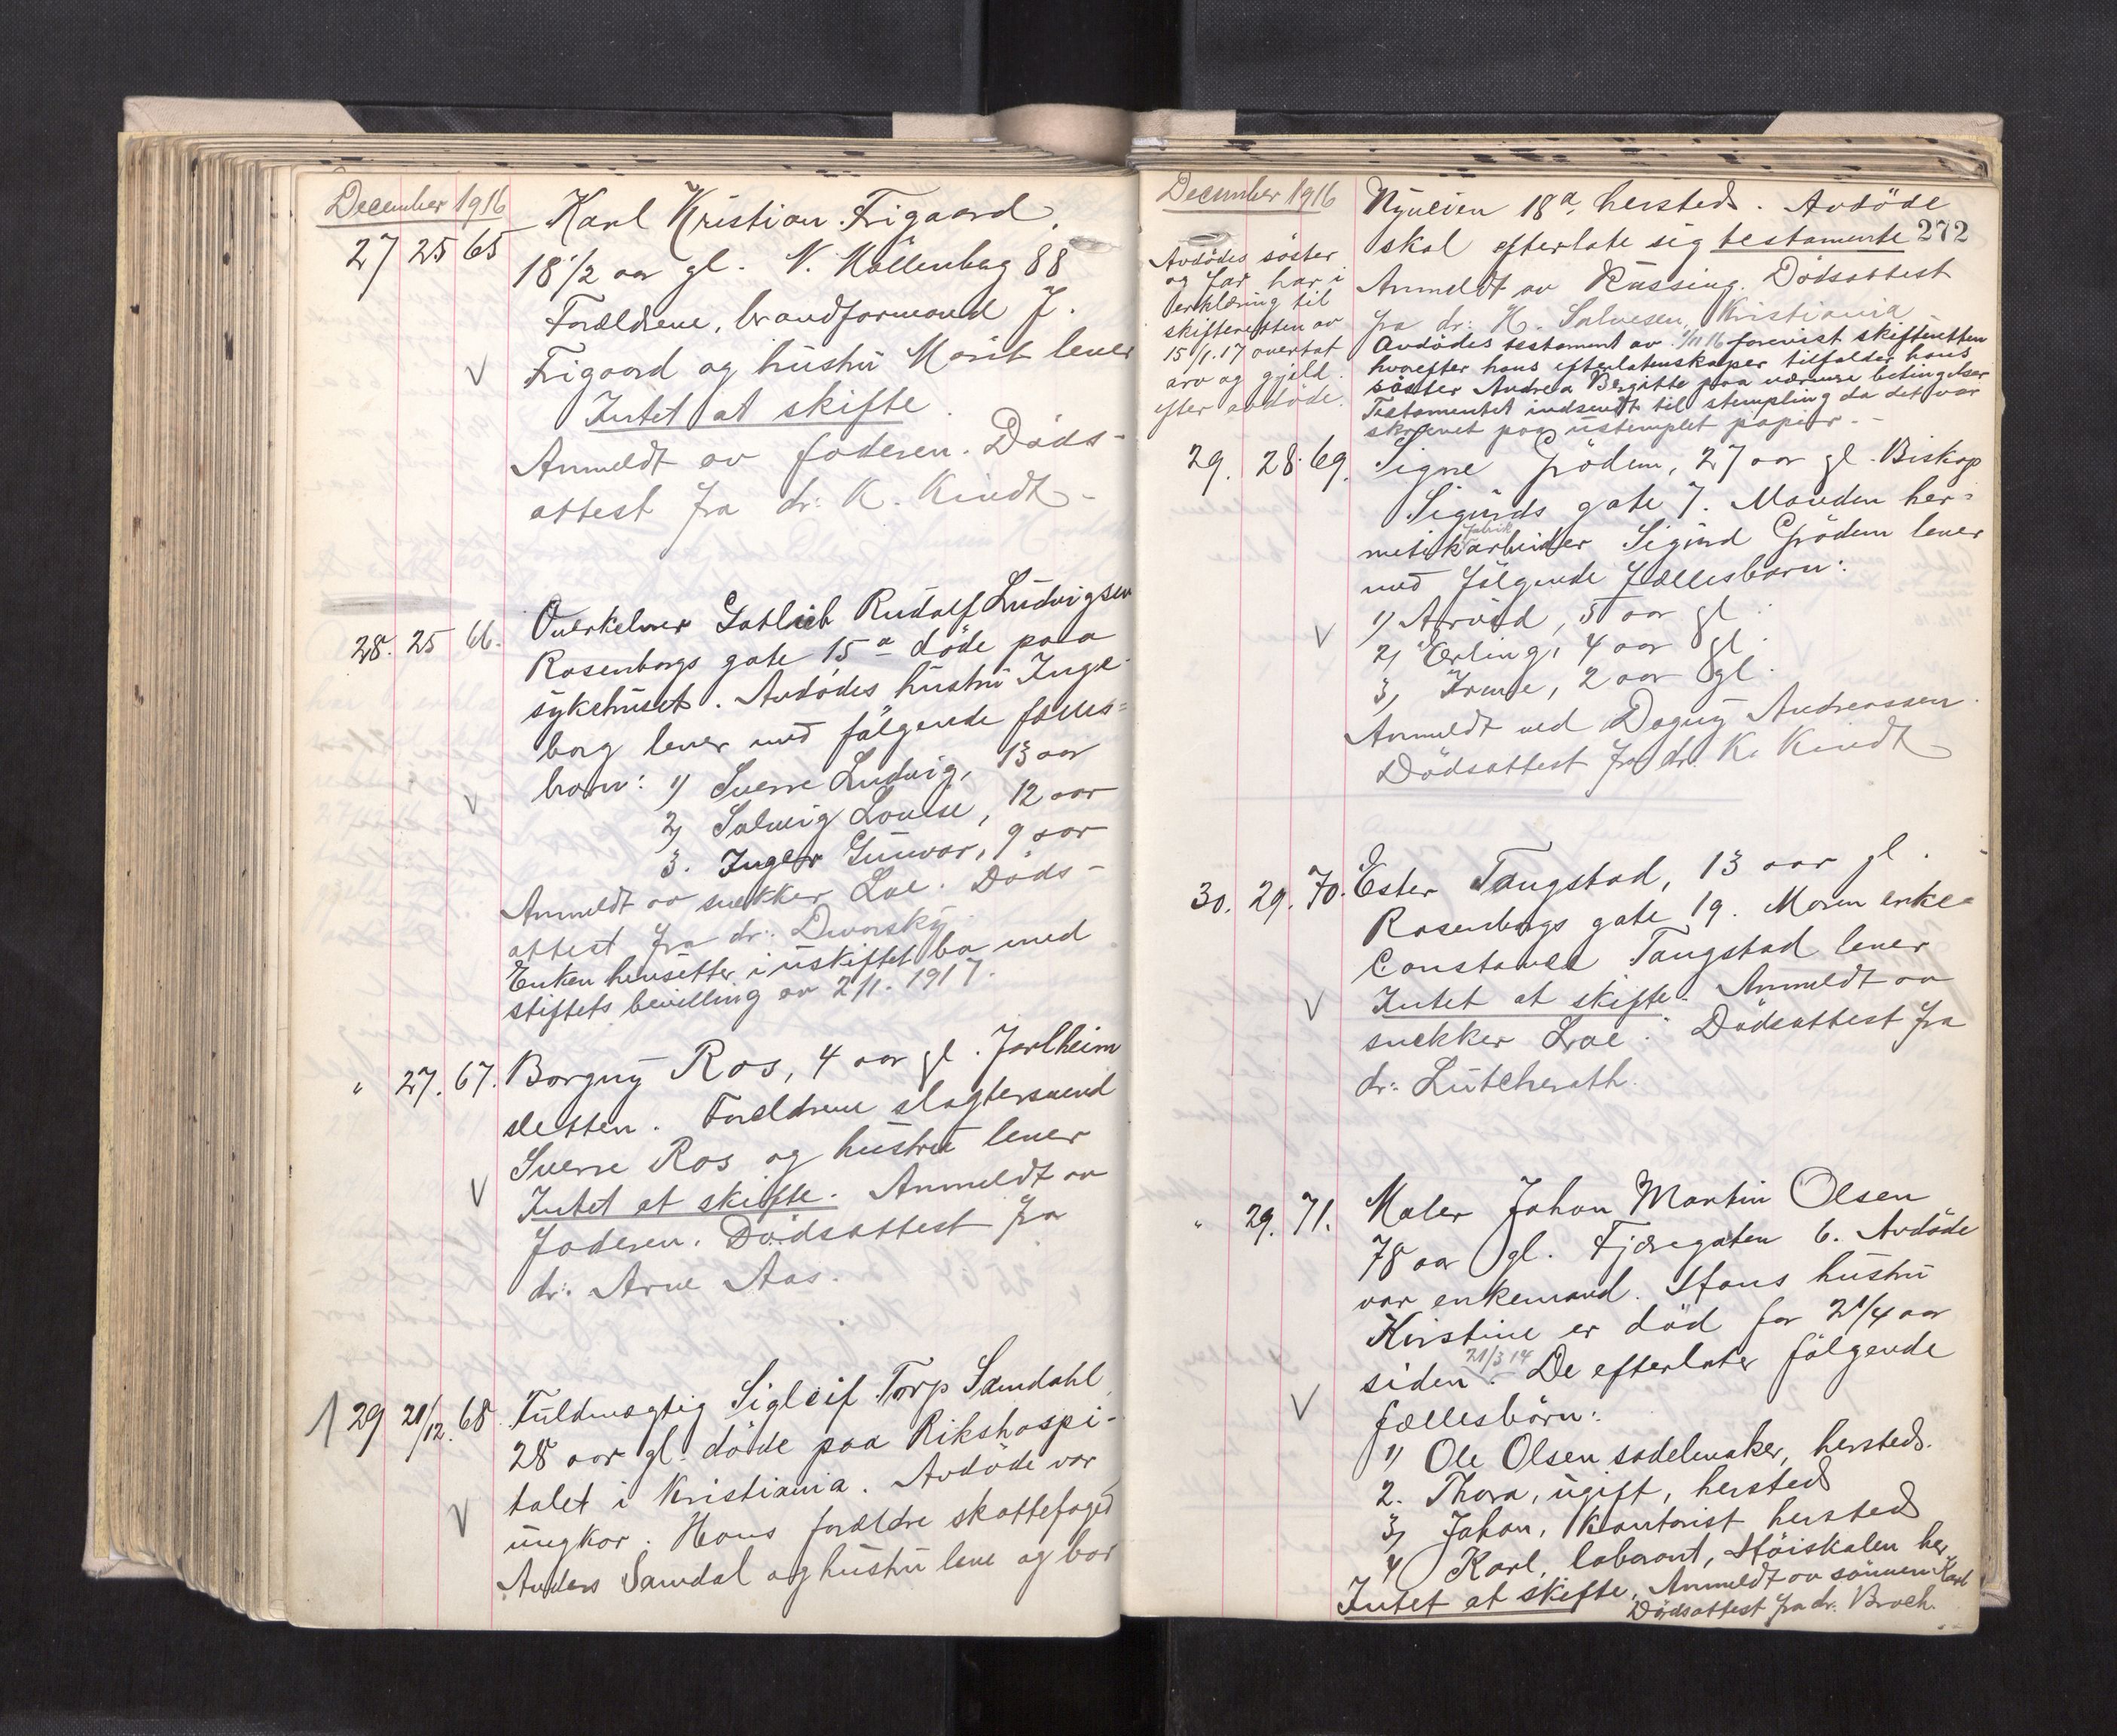 December 1916
27 25 65 Karl Kristian Frigaard,
18 1/2 aar gl. N. Möllenbag 88
Forældrene, brandformand J.
Frigaard og hustru Marit lever
Intet at skifte.
Anmeldt av faderen. Döds-
attest fra dr: K. Kindt-
28. 25 66. Overkelner Gotlieb Rudolf Ludvigsen
Rosenborgs gate 15a döde paa
sykehuset. Avdödes hustru Ingе-
borg lever med fölgende fælles=
barn: 1) Sverre Ludvig, 13 aar
2) Solveig Louise, 12 aar
3. Inger Gunvor, 9 aar
Anmeldt av snekker Loe. Döds-
attest fra dr: Dworsky.
Enken hensitter i uskiftet bo med
stiftets bevilling av 2/1. 1917.
" 27. 67. Borgny Ros, 4 aar gl. Jarlheim
sletten. Forældrene slagtersvend
Sverre Ros og hustru lever
Intet at skifte. Anmeldt av
faderen. Dödsattest fra
dr: Arne Aas.
29 21/12. 68. Fuldmægtig Sigleif Torp Samdahl,
28 aar gl. döde paa Rikshospi-
talet i Kristiania. Avdöde var
ungkar. Hans forældre skattefoged
Anders Samdal og hustru leve og bor
December 1916
Nyveien 18a, hersteds. Avdöde
skal efterlate sig testamente 272
Anmeldt av Rossing. Dödsattest
fra dr: H. Salvesen, Kristiania
Avdödes testament av 1/11 16 forevist skifteretten
hvorefter hans efterlatenskaper tilfalder hans
söster Andrea Bergitte paa nærmere betingelser
Testamentet indsendt til stempling da det var
skrevet paa ustemplet papir.-
Avdödes söster
og far har i
erklæring til
skifteretten av
15/1.17 overtat
arv og gjeld
efter avdöde.
29. 28. 69. Signe Grödem, 27 aar gl. Biskop
Sigurds gate 7. Manden her=
fabrik
metikarbeider Sigurd Grödem lever
med fölgende fællesbarn:
1) Arvid, 5 aar gl.
2) Erling, 4 aar gl.
3, Irene, 2 aar gl.
Anmeldt ved Dagny Andreassen.
Dödsattest fra dr. K. Kindt
30. 29. 70. Ester Tangstad, 13 aar gl.
Rosenborgs gate 19. Moren enke=
Constance Tangstad lever
Intet at skifte. Anmeldt av
snekker Loe. Dödsattest fra
dr: Lütcherath.
" 29. 71. Maler Johan Martin Olsen
78 aar gl. Fjæregaten 6. Avdöde
var enkemand. Hans hustru
Kirstine er död for 2 1/4 aar
21/3 14
siden. De efterlater fölgende
fællesbörn:
1) Ole Olsen sadelmaker, hersteds.
2. Thora, ugift, hersteds
3) Johan, kontorist hersteds
4) Karl, laborant, Höiskolen her
Intet at skifte. Anmeldt av sönnen Karl
Dödsattest fra dr. Broch.